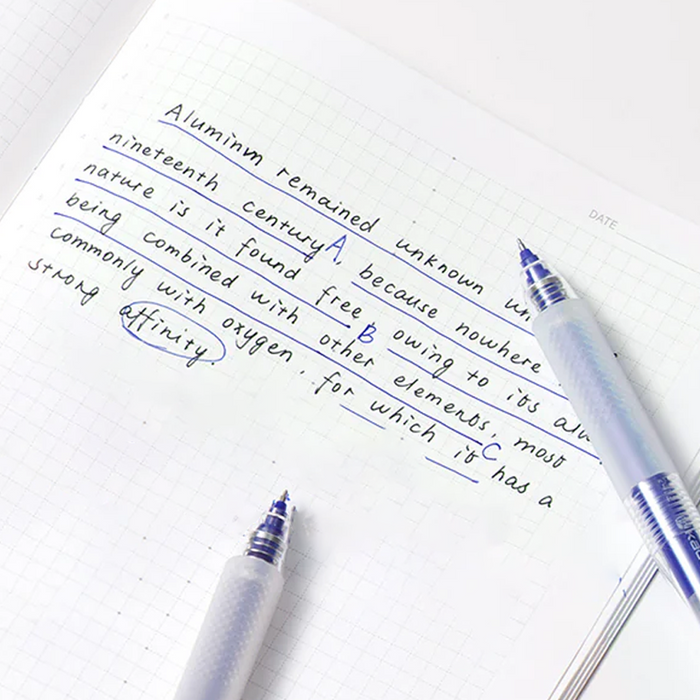 DATE
Aluminum remained unknown
nineteenth century A, because nowhere
nature is it found free B owing to its
being combined with other elements, C most
commonly with oxygen, for which it has a
strong affinity.